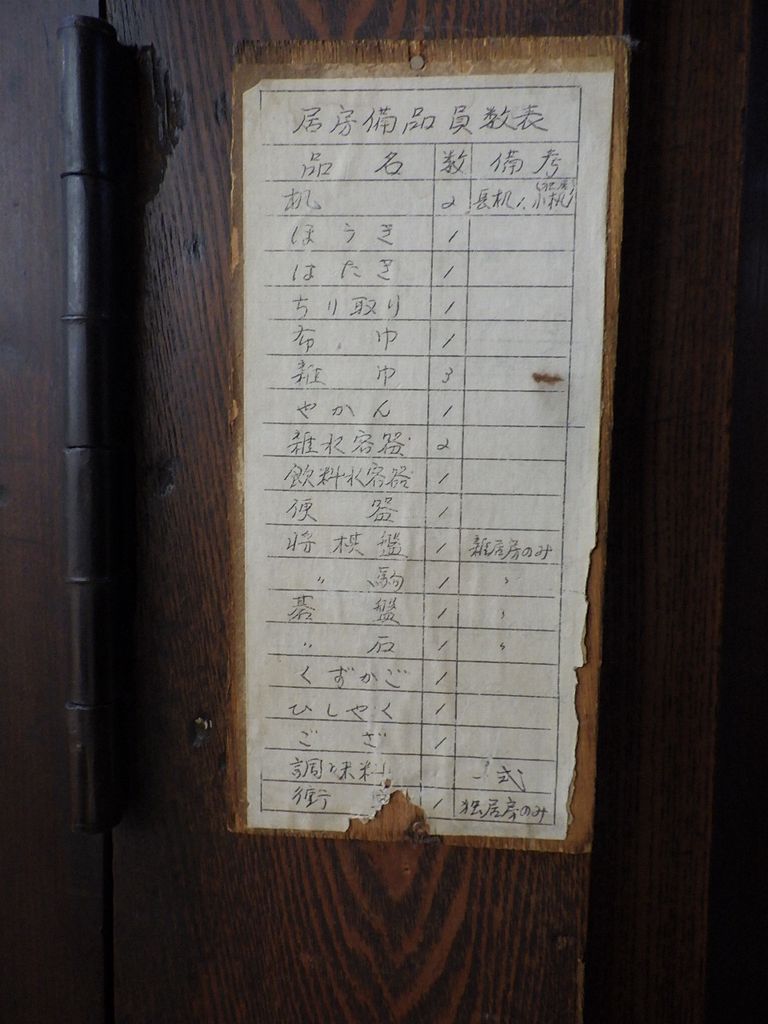 居房備品員数表
品名 数 備考
机 2 長机1. 小机1
ほうき 1
はたき 1
ちり取り 1
布巾 1
雑巾 3
やかん 1
雑水容器 2
飲料水容器 1
便器 1
将棋盤 1 雑居房のみ
〃駒 1 〃
碁盤 1 〃
〃石 1 〃
くずかご 1
ひしやく 1
ござ 1
調味料 一式
衝 1 独居房のみ